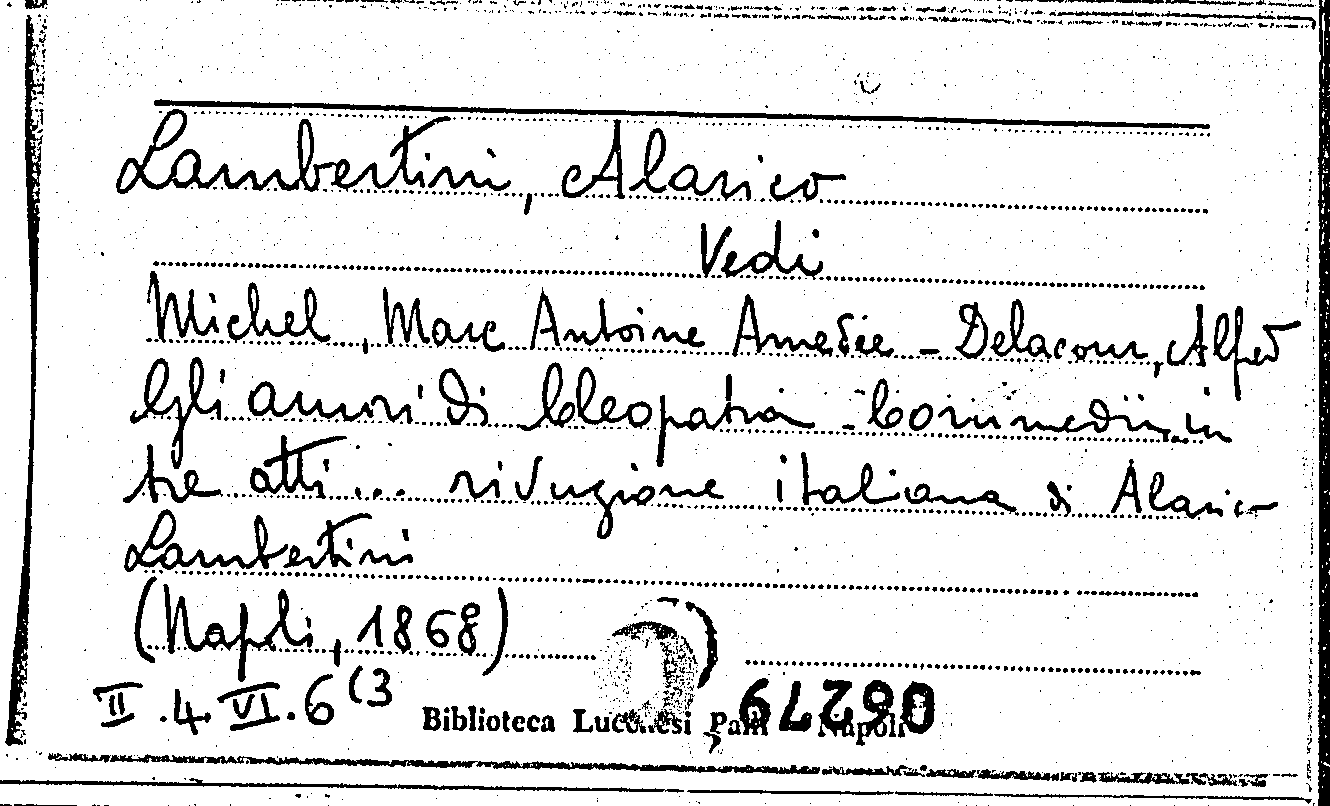 Lambertini, Alarico
Vedi
Michel, Marc Antoine Amedée - Delacour, Alfred
Gli amori di Cleopatra - Commedia in
tre atti... riduzione italiana di Alarico
Lambertini
(Napoli, 1868)
II.4.VI.6(3
Biblioteca Lucchesi Palli Napoli